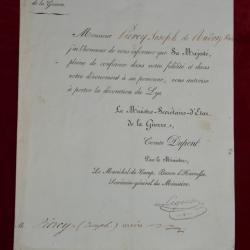 de la Guerre.
Monsieur Piercy Joseph de
j'ai l'honneur de vous informer que Sa Majesté,
pleine de confiance dans votre fidélité et dans
votre dévouement à sa personne, vous autorise
à porter la décoration du Lys.
Le Ministre-Secrétaire-d'État
de la Guerre,
Comte Dupont
Par le Ministre,
Le Maréchal de Camp, Baron
Secrétaire-général du Ministère.
à Piercy (Joseph)